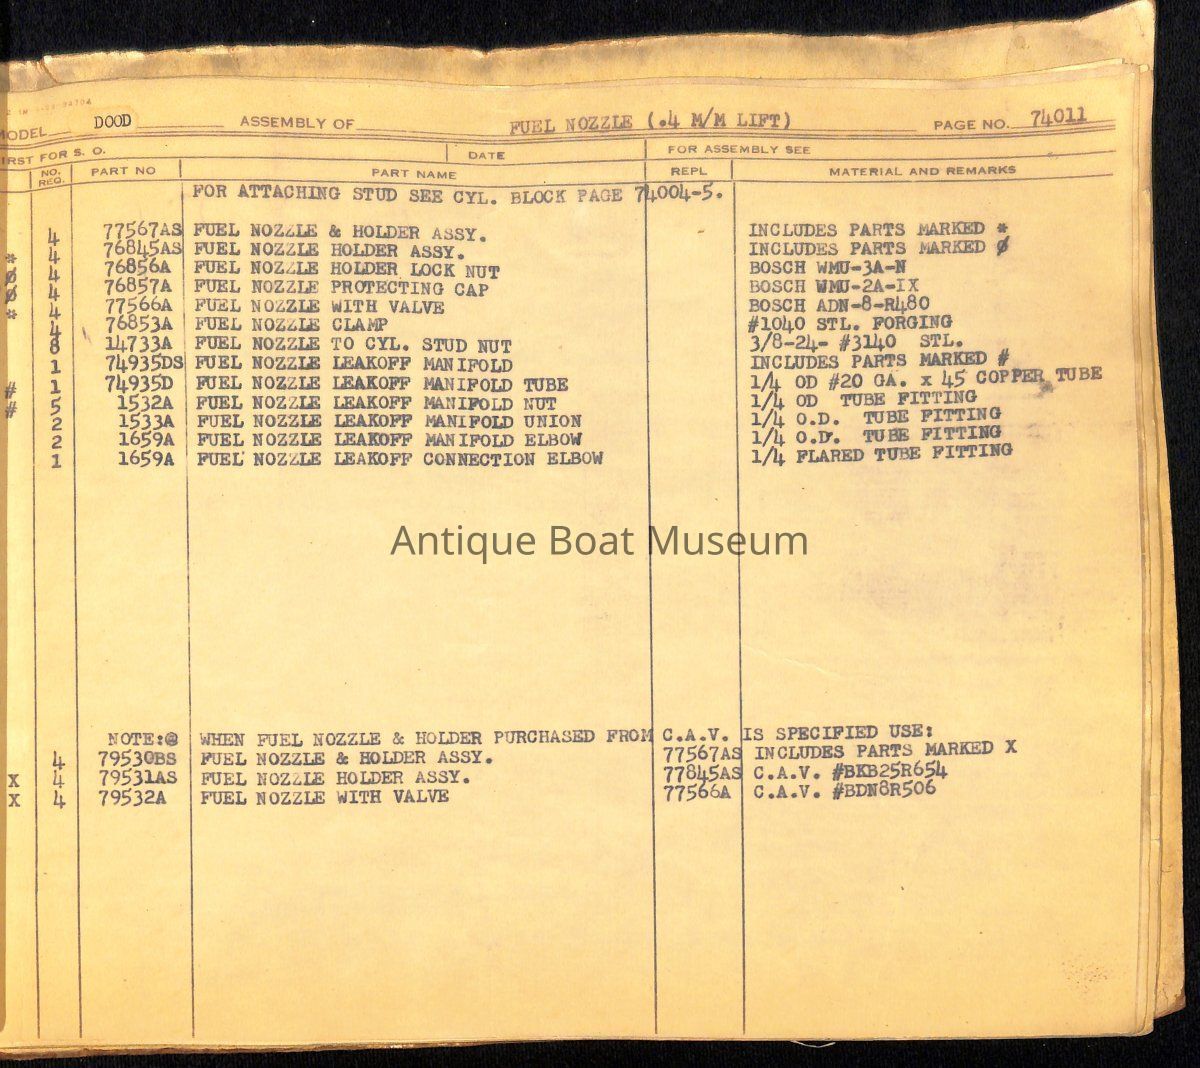 MODEL DOOD ASSEMBLY OF FUEL NOZZLE (.4 M/M LIFT) PAGE NO. 74011
IRST FOR S. O. DATE FOR ASSEMBLY SEE
NO. REQ. PART NO PART NAME REPL MATERIAL AND REMARKS
FOR ATTACHING STUD SEE CYL. BLOCK PAGE 74004-5.
4 77567AS FUEL NOZZLE & HOLDER ASSY. INCLUDES PARTS MARKED *
* 4 76845AS FUEL NOZZLE HOLDER ASSY. INCLUDES PARTS MARKED Ø
Ø 4 76856A FUEL NOZZLE HOLDER LOCK NUT BOSCH WMU-3A-N
Ø 4 76857A FUEL NOZZLE PROTECTING CAP BOSCH WMU-2A-IX
* 4 77566A FUEL NOZZLE WITH VALVE BOSCH ADN-8-R480
4 76853A FUEL NOZZLE CLAMP #1040 STL. FORGING
8 14733A FUEL NOZZLE TO CYL. STUD NUT 3/8-24- #3140 STL.
1 74935DS FUEL NOZZLE LEAKOFF MANIFOLD INCLUDES PARTS MARKED #
# 1 74935D FUEL NOZZLE LEAKOFF MANIFOLD TUBE 1/4 OD #20 GA. x 45 COPPER TUBE
# 5 1532A FUEL NOZZLE LEAKOFF MANIFOLD NUT 1/4 OD TUBE FITTING
2 1533A FUEL NOZZLE LEAKOFF MANIFOLD UNION 1/4 O.D. TUBE FITTING
2 1659A FUEL NOZZLE LEAKOFF MANIFOLD ELBOW 1/4 O.D. TUBE FITTING
1 1659A FUEL NOZZLE LEAKOFF CONNECTION ELBOW 1/4 FLARED TUBE FITTING
Antique Boat Museum
NOTE:@ WHEN FUEL NOZZLE & HOLDER PURCHASED FROM C.A.V. IS SPECIFIED USE:
4 79530BS FUEL NOZZLE & HOLDER ASSY. 77567AS INCLUDES PARTS MARKED X
X 4 79531AS FUEL NOZZLE HOLDER ASSY. 77845AS C.A.V. #BKB25R654
X 4 79532A FUEL NOZZLE WITH VALVE 77566A C.A.V. #BDN8R506